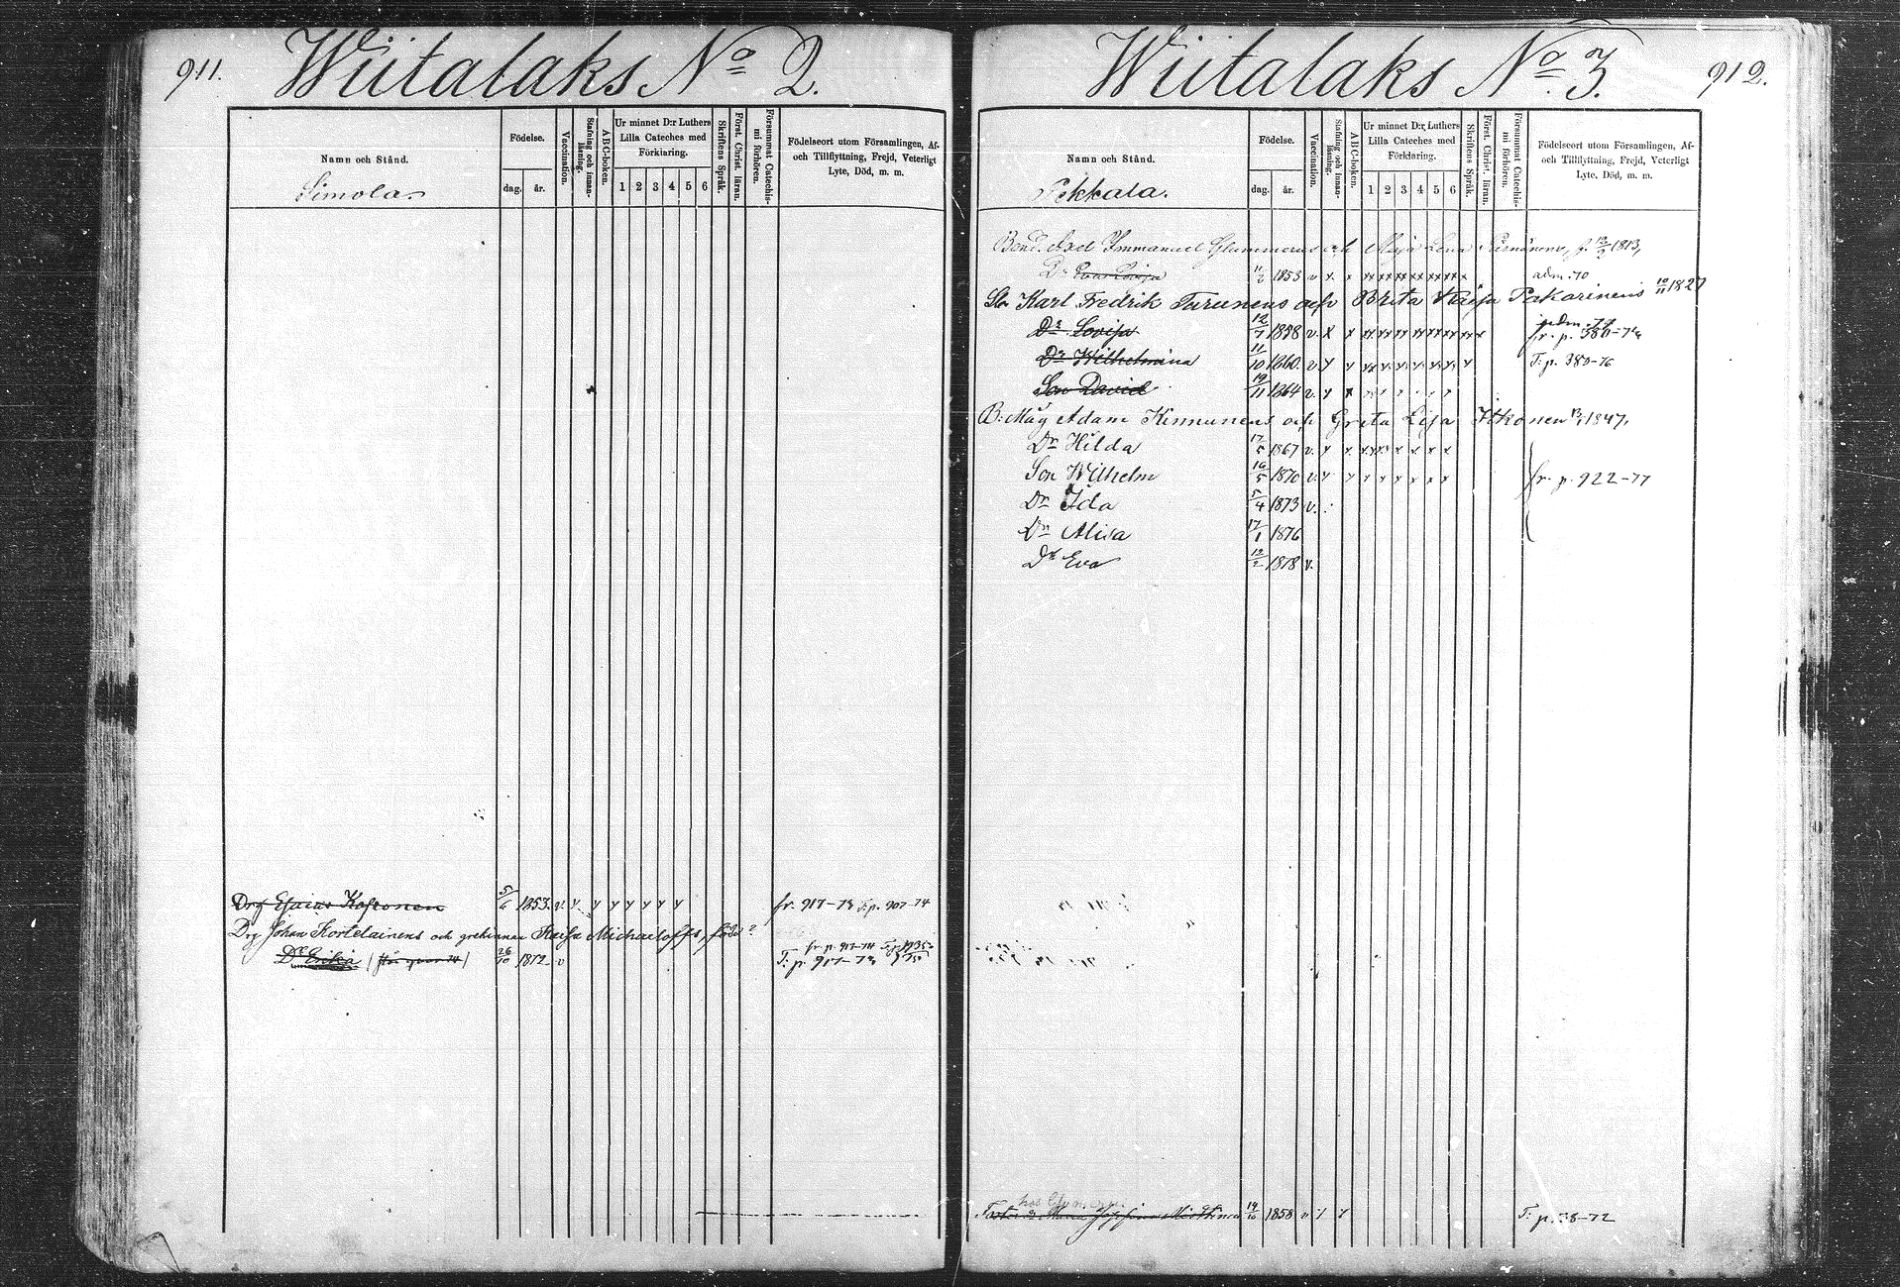 911.
Wiitalaks No 2.
Namn och Stånd.
Simola.
Födelse.
dag. år.
Vaccination.
Stafning och innan-läsning.
ABC-boken.
Ur minnet D:r Luthers
Lilla Cateches med
Förklaring.
1 2 3 4 5 6
Skriftens Språk.
Först. Christ. läran.
Försummat Catechis-
mi förhören.
Födelseort utom Församlingen, Af-
och Tillflyttning, Frejd, Veterligt
Lyte, Död, m. m.
Drg Esaias Kosonen 5/6 1853. v. fr. 917-73 T. p. 907-74
Drg Johan Kortelainens och grekinnan Kaisa Michaeloffs, född ?
fr p. 917-74
Dr Erika 26/10 1872 v T: p. 917-73
912.
Wiitalaks No 3.
Namn och Stånd.
Pekkala.
Födelse.
dag. år.
Vaccination.
Stafning och innan-läsning.
ABC-boken.
Ur minnet D:r Luthers
Lilla Cateches med
Förklaring.
1 2 3 4 5 6
Skriftens Språk.
Först. Christ. läran.
Försummat Catechis-
mi förhören.
Födelseort utom Församlingen, Af-
och Tillflyttning, Frejd, Veterligt
Lyte, Död, m. m.
Bond. Axel Immanuel Glummerus och Maja Lena 1813,
Dr 11/2 1853 v. x x xx xx xx xx xx xx x adm. 70
Karl Fredrik Turunens och Brita Kaisa Pakarinens 10/11 1827
Dr Lovisa 12/7 v x x fr. p. 380-74
Dr Wilhelmina 11/10 1860. v x T: p. 380-76
Son David 19/11 1864 v. x x
B: Måg Adam Kinnunens och Greta Lisa Itkonen 1847,
Dr Hilda 17/5 1867 v. x x
Son Wilhelm 16/5 1870 v. x x x x x x x x fr. p. 922-77
Dr Ida 5/4 1873 v.
Dr Alisa 17/1 1876
Dr Eva 12/2 1878 v.
Maria Josefina 1858 v T: p. 58-72